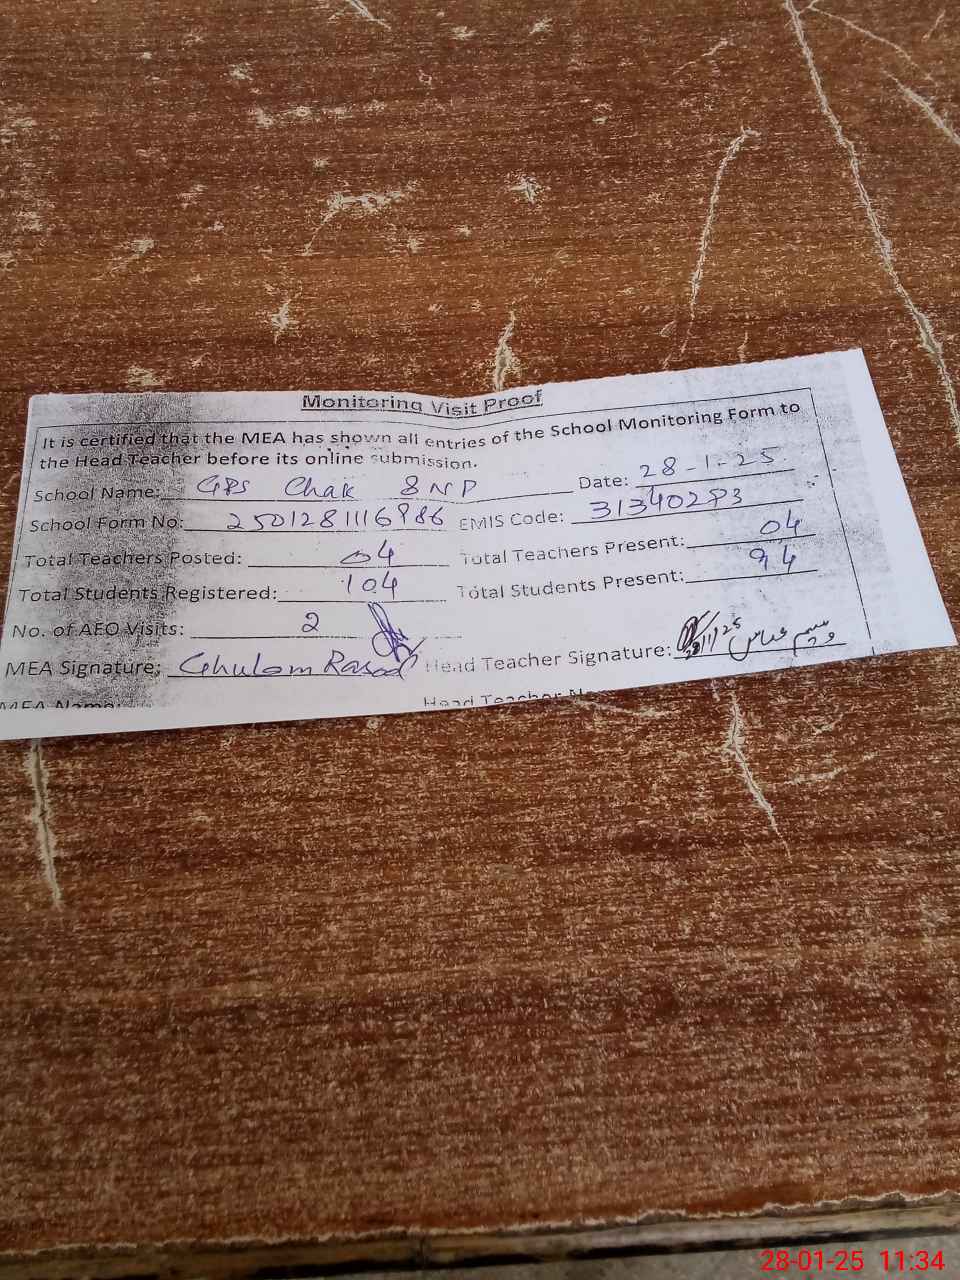 Monitoring Visit Proof
It is certified that the MEA has shown all entries of the School Monitoring Form to
the Head Teacher before its online submission.
School Name: GPS Chak 8NP Date: 28-1-25
School Form No: 2501281116986 EMIS Code: 31340293
Total Teachers Posted: 04 Total Teachers Present: 04
Total Students Registered: 104 Total Students Present: 94
No. of AEO Visits: 2
MEA Signature: Ghulam Rasool Head Teacher Signature:
MEA Name: Head Teacher
28-01-25 11:34